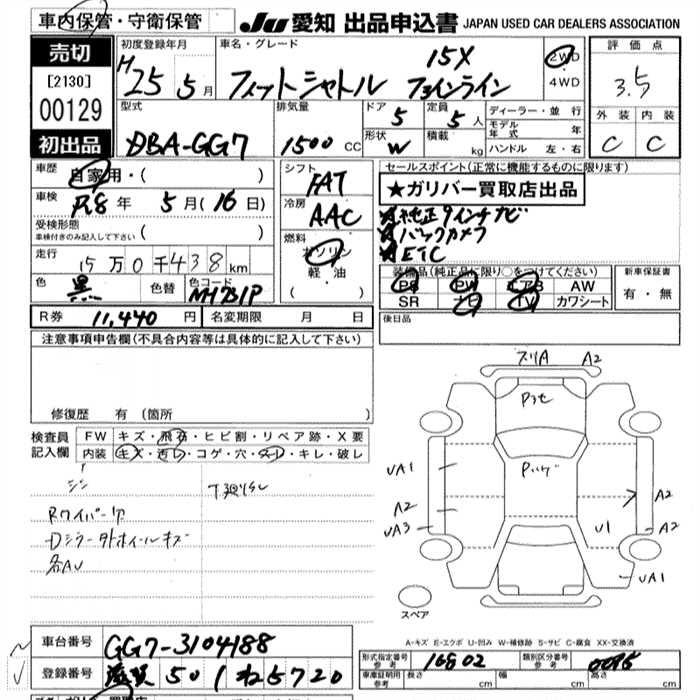 車内保管・守衛保管
JU 愛知 出品申込書 JAPAN USED CAR DEALERS ASSOCIATION
売切
[2130]
00129
初出品
初度登録年月
H25年 5月
車名・グレード
フィットシャトル
15X
ファインライン
2WD
4WD
評価点
3.5
外装 内装
C C
型式
DBA-GG7
排気量
1500 CC
ドア 5
定員 5人
形状 W
積載 kg
ディーラー・並行
モデル年式 年
ハンドル 左・右
車歴
自家用・( )
車検
R8年 5月(16日)
受検形態
車検付きのみ記入して下さい ( )
走行
15万0千438km
色 黒
色替
色コード
NH731P
シフト
FAT
冷房
AAC
燃料
ガソリン
軽・油
( )
セールスポイント(正常に機能するものに限ります)
★ガリバー買取店出品
★純正9インチナビ
★バックカメラ
★ETC
装備品(純正品に限り○をつけてください)
PS PW エアB AW
SR ナビ TV カワシート
新車保証書
有・無
後日品
R券 11,440円
名変期限 月 日
注意事項申告欄(不具合内容等は具体的に記入して下さい)
修復歴 有(箇所 )
検査員記入欄
FW キズ・飛石・ヒビ割・リペア跡・X要
内装 キズ・汚レ・コゲ・穴・スレ・キレ・破レ
下廻りサビ
Rワイパー欠
Dミラー外ホイールキズ
各AU
スリA A2
Pハゲ
UA1
A2
UA3
A2
A2
U1
UA1
スペア
A-キズ E-エクボ U-凹み W-補修跡 S-サビ C-腐食 XX-交換済
車台番号 GG7-3104188
登録番号 滋賀 501 ね5720
形式指定番号 参考 16802
類別区分番号 参考
車庫証明用 参考
長さ cm
幅 cm
高さ cm